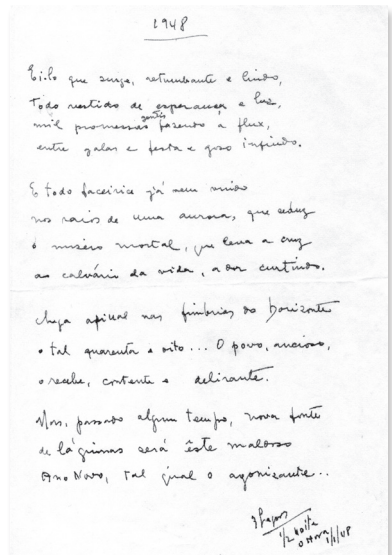 1948
Ei-lo que surge, retumbante e lindo,
Todo vestido de esperança e luz,
mil promessas gentis fazendo à flux,
entre galas e festa e gozo infindo.
E todo faceirice já vem vindo
nos raios de uma aurora, que seduz
o mísero mortal, que leva a cruz
ao calvário da vida, a dor curtindo.
Chega afinal nas fímbrias do horizonte
o tal quarenta e oito... O povo, ancioso,
o recebe, contente e delirante.
Mas, passado algum tempo, nova fonte
de lágrimas será êste maldoso
Ano Novo, tal qual o agonizante...
1/2 Noite
0 Hora
1/1/48